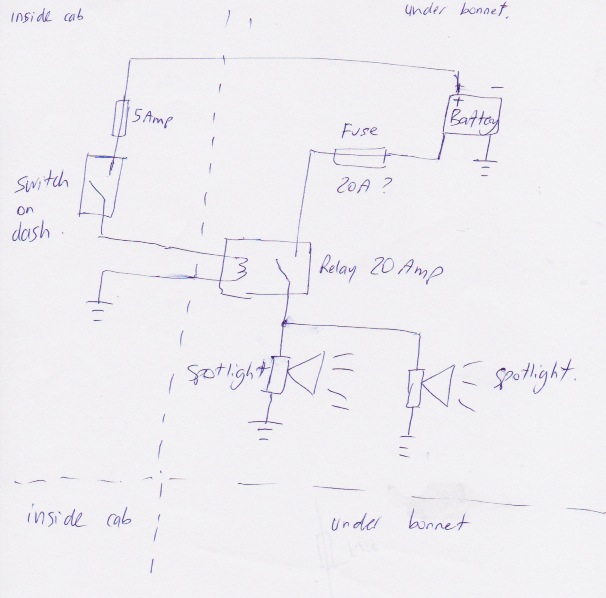 inside cab
under bonnet.
5Amp
+ -
Battery
Fuse
20A ?
Switch
on
dash.
Relay 20 Amp
Spotlight
spotlight.
inside cab
under bonnet